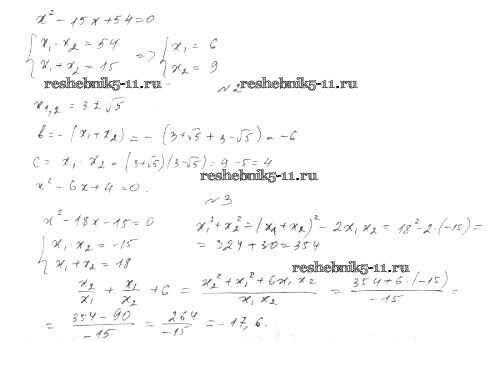 x² - 15x + 54 = 0
{ x₁ · x₂ = 54 => { x₁ = 6
{ x₁ + x₂ = 15 { x₂ = 9
reshebnik5-11.ru
№2
reshebnik5-11.ru
x₁,₂ = 3 ± √5
b = - (x₁ + x₂) = - (3+√5 + 3-√5) = -6
c = x₁ x₂ = (3+√5)(3-√5) = 9 - 5 = 4
reshebnik5-11.ru
x² - 6x + 4 = 0.
№3
x² - 18x - 15 = 0
{ x₁ x₂ = -15
{ x₁ + x₂ = 18
x₁² + x₂² = (x₁ + x₂)² - 2x₁x₂ = 18² - 2·(-15) =
= 324 + 30 = 354
reshebnik5-11.ru
x₂/x₁ + x₁/x₂ + 6 = (x₂² + x₁² + 6x₁x₂)/(x₁x₂) = (354 + 6·(-15))/(-15) =
= (354 - 90)/(-15) = 264/(-15) = -17,6.